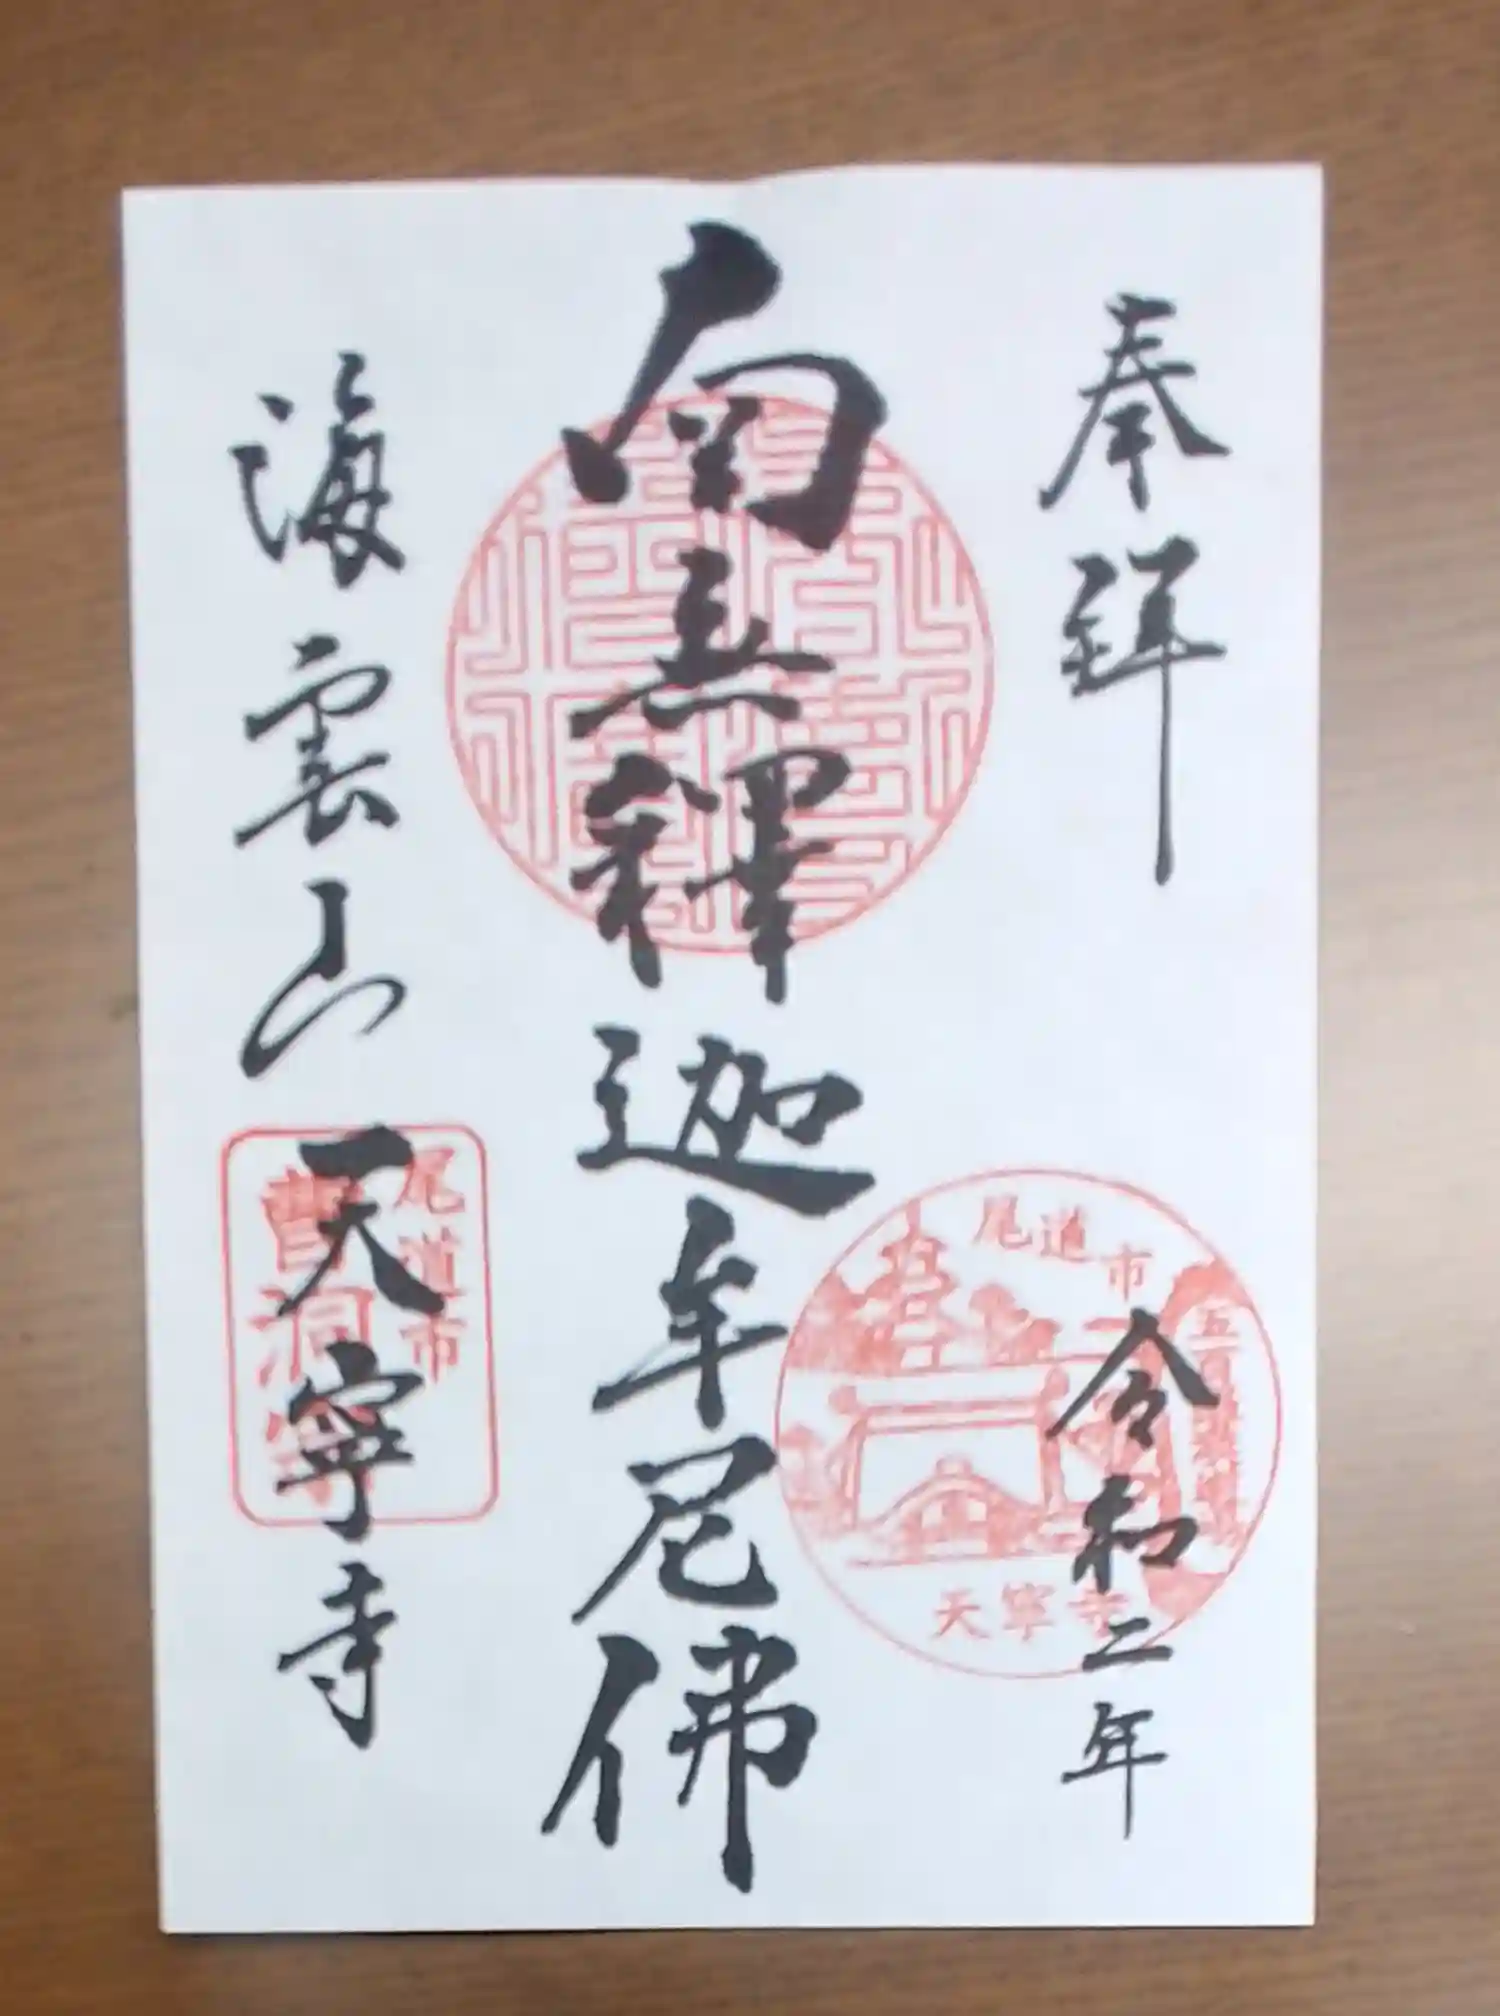 奉拝
令和二年
尾道市
五百羅漢
天寧寺
南無釋迦牟尼佛
海雲山
天寧寺
尾道市
曹洞宗